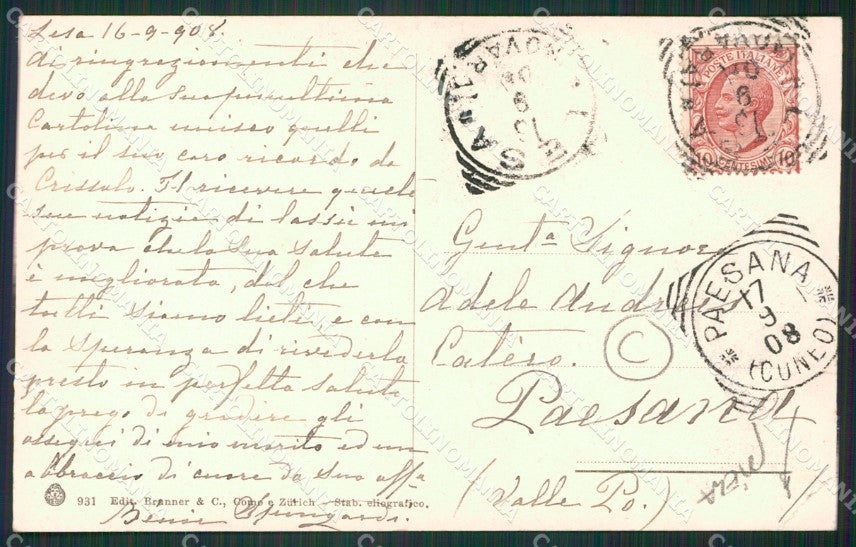 Lesa 16-9-908.
Ai ringraziamenti che
devo alla Sua penultima
Cartolina unisco quelli
per il suo caro ricordo da
Crissolo. Il ricevere queste
sue notizie di lassù mi
prova che la Sua salute
è migliorata, del che
tutti siamo lieti e con
la speranza di rivederla
presto in perfetta salute
la prego di gradire gli
ossequi di mio marito ed un
abbraccio di cuore da sua affa
931 Edit. Branner & C., Como e Zürich - Stab. eliografico.
LESA
NOVARA
POSTE ITALIANE
10 CENTESIMI 10
LESA
NOVARA
Gent.a Signora
Adele
Paesana
(Valle Po.)
PAESANA
17
9
08
(CUNEO)
C
CARTOLINOMANIA